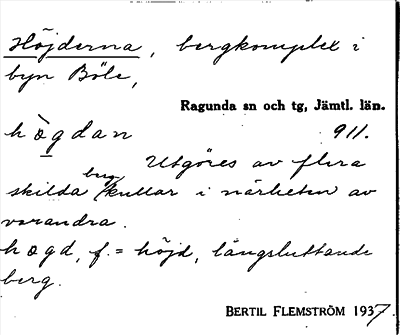 Höjderna, bergkomplex i
byn Böle,
Ragunda sn och tg, Jämtl. län.
hògdan 911.
Utgöres av flera
skilda bergkullar i närheten av
varandra.
hogd, f. = höjd, långsluttande
berg.
BERTIL FLEMSTRÖM 1937.